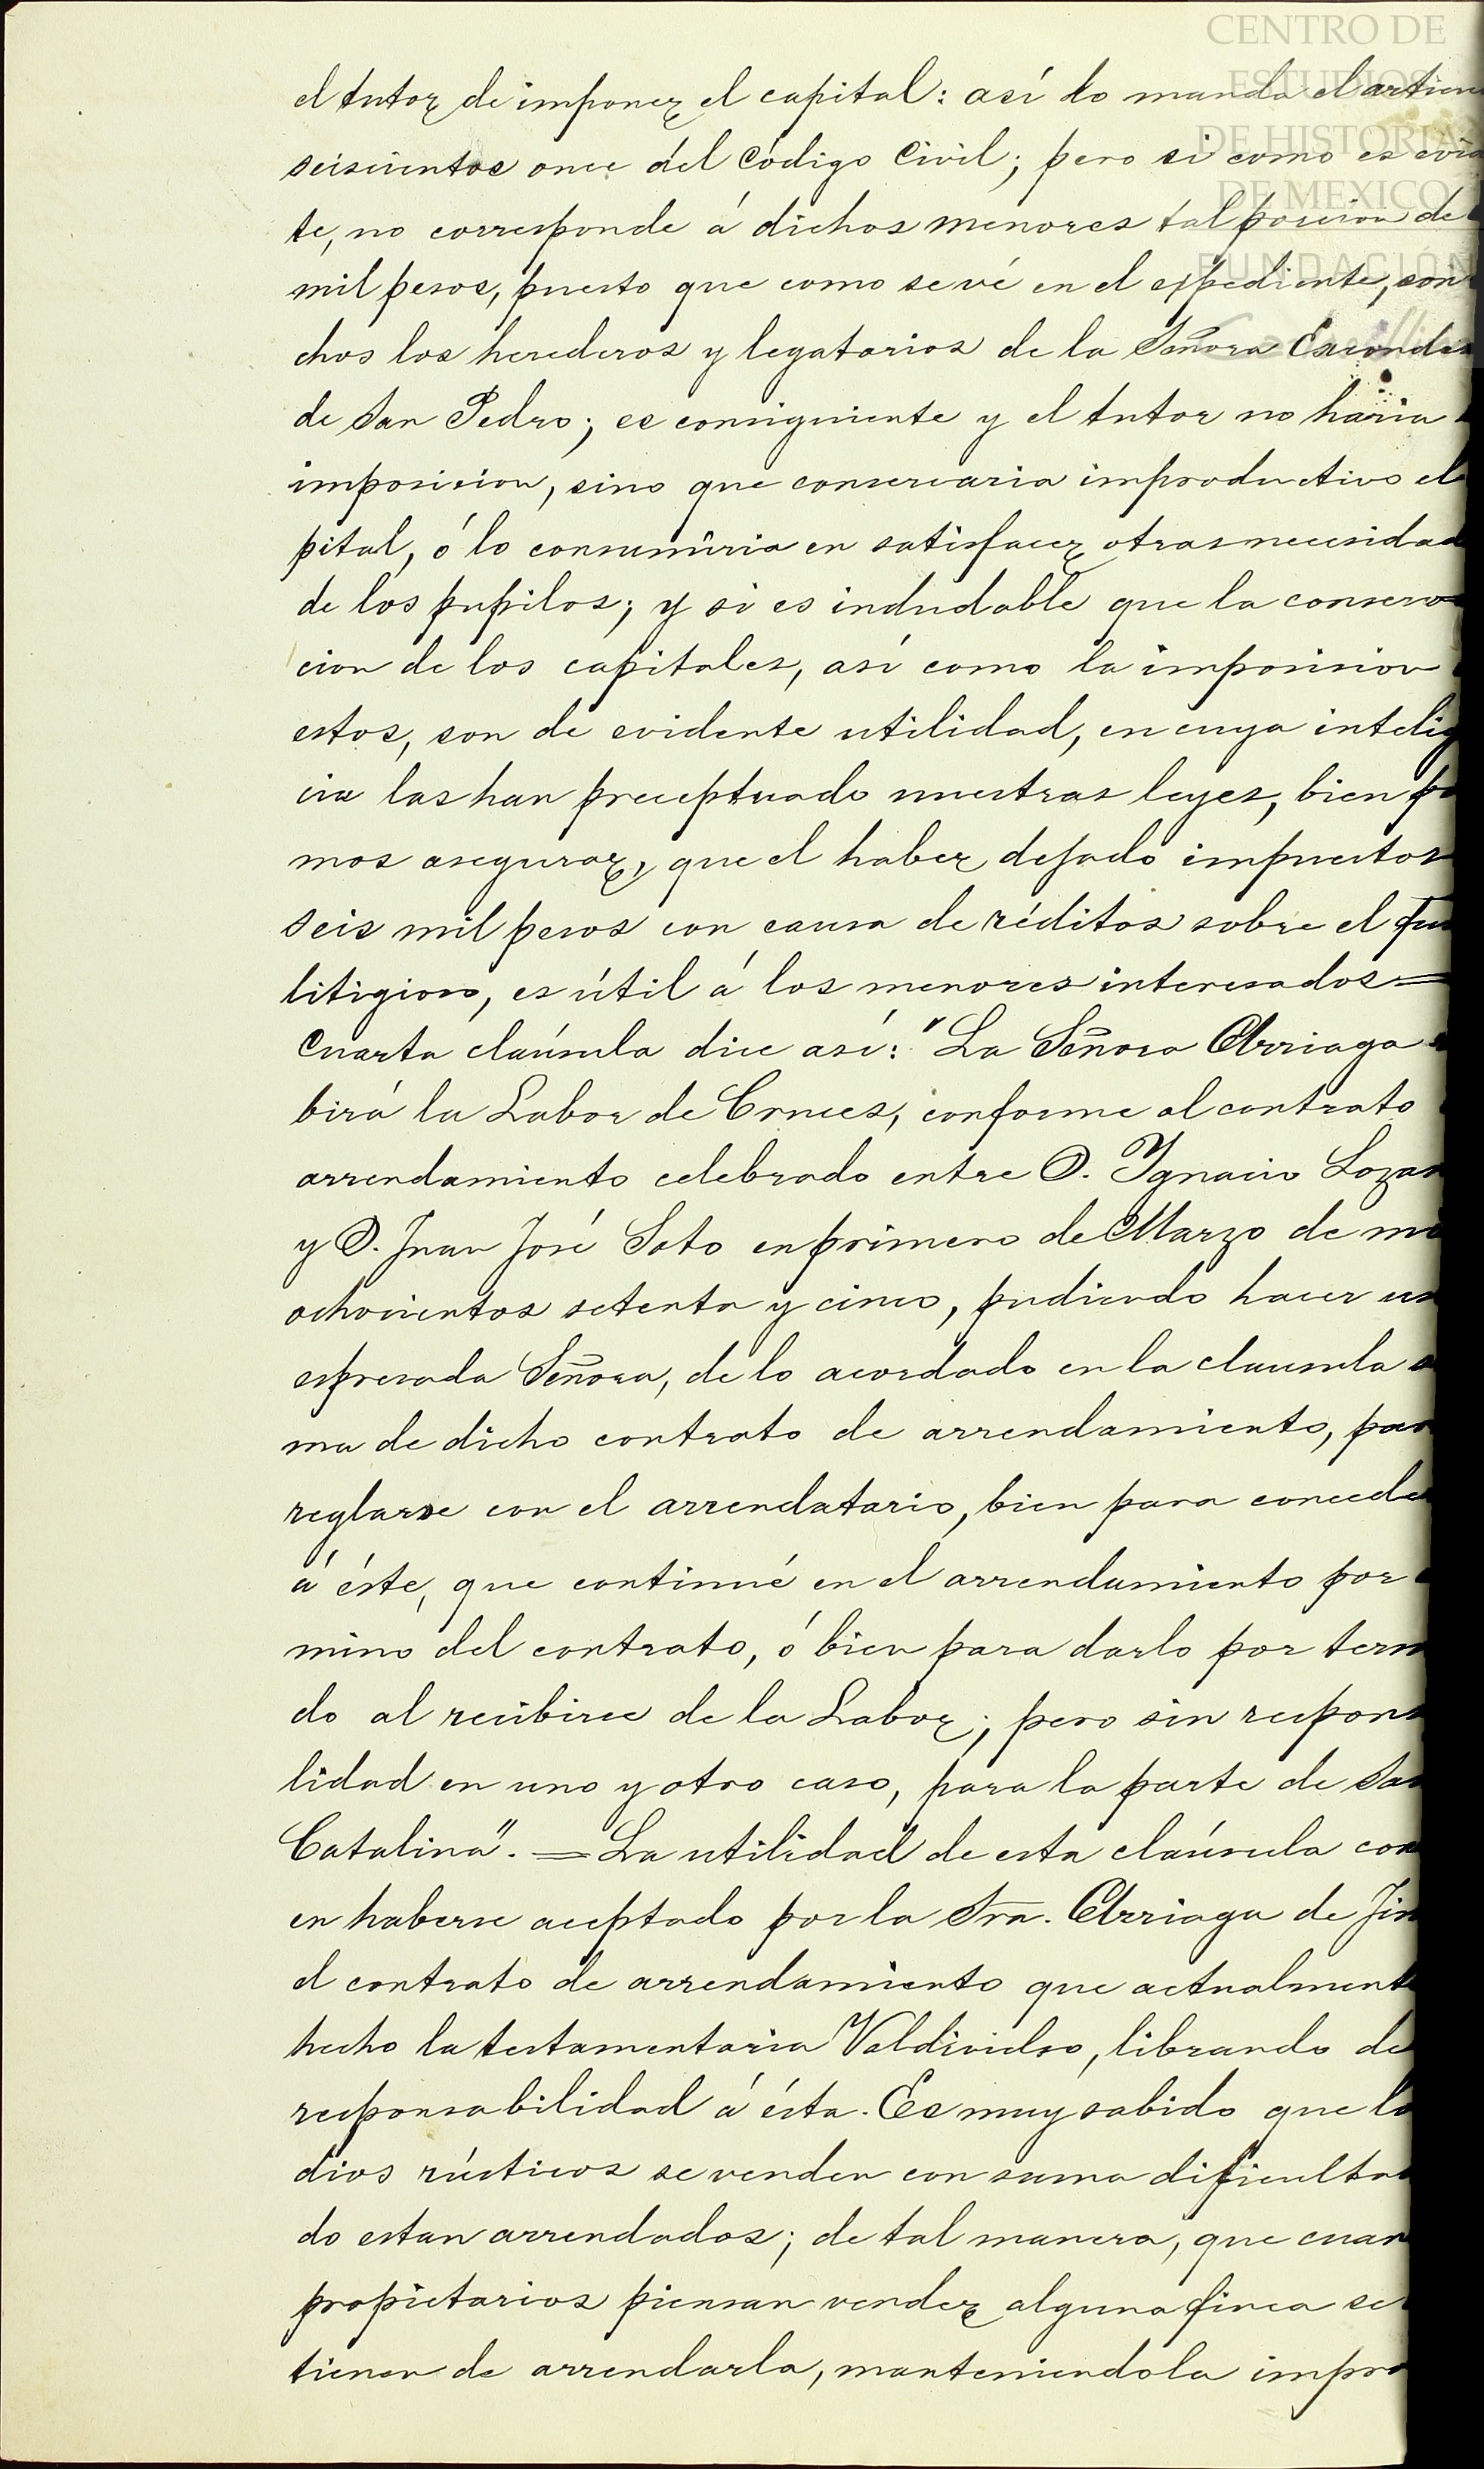 CENTRO DE
ESTUDIOS
DE HISTORIA
DE MEXICO
FUNDACIÓN
el tutor de imponer el capital: así lo manda el articu
seiscientos once del Código Civil; pero si como es evid
te, no corresponde á dichos menores tal porcion de
mil pesos, puesto que como se vé en el espediente, son
chos los herederos y legatarios de la Señora Escondon
de San Pedro; es consiguiente y el tutor no haria
imposicion, sino que conservaria improductivo el
pital, ó lo consumiria en satisfacer otras necesidad
de los pupilos; y si es indudable que la conserva
cion de los capitales, así como la imposicion
estos, son de evidente utilidad, en cuya intelig
cia las han preceptuado nuestras leyes, bien po
mos asegurar, que el haber dejado impuestos
seis mil pesos con causa de réditos sobre el fun
litigioso, es útil á los menores interesados =
Cuarta claúsula dice así: "La Señora Arriaga
birá la Labor de Cruces, conforme al contrato
arrendamiento celebrado entre D. Ygnacio Lozan
y D. Juan José Soto en primero de Marzo de mil
ochocientos setenta y cinco, pudiendo hacer us
espresada Señora, de lo acordado en la clausula
ma de dicho contrato de arrendamiento, par
reglarse con el arrendatario, bien para concede
á éste, que continué en el arrendamiento por
mino del contrato, ó bien para darlo por term
do al recibirse de la Labor; pero sin respons
lidad en uno y otro caso, para la parte de San
Catalina". = La utilidad de esta claúsula con
en haberse aceptado por la Sra. Arriaga de Jim
el contrato de arrendamiento que actualment
hecho la testamentaria Valdivielso, librando de
responsabilidad á ésta. Es muy sabido que lo
dios rústicos se venden con suma dificulta
do estan arrendados; de tal manera, que cuan
propietarios piensan vender alguna finca se
tienen de arrendarla, manteniendola impro